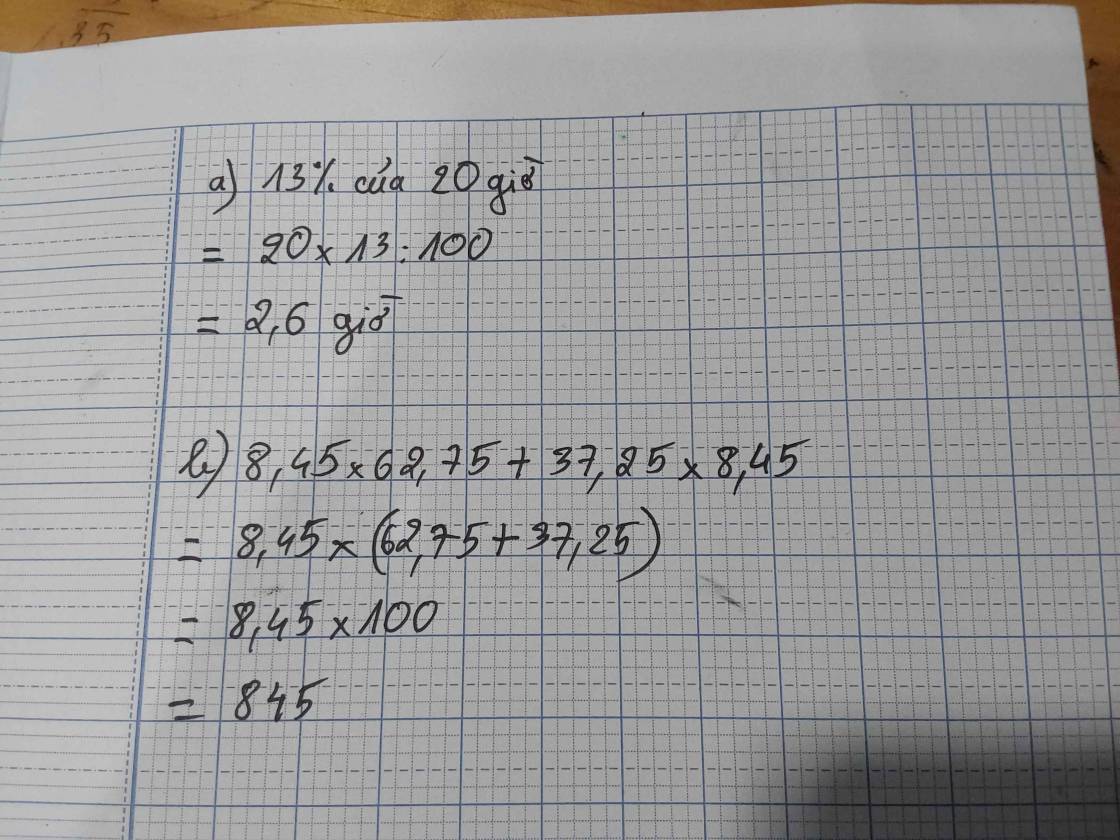 35
a) 13% của 20 giờ
= 20 x 13 : 100
= 2,6 giờ
b) 8,45 x 62,75 + 37,25 x 8,45
= 8,45 x (62,75 + 37,25)
= 8,45 x 100
= 845